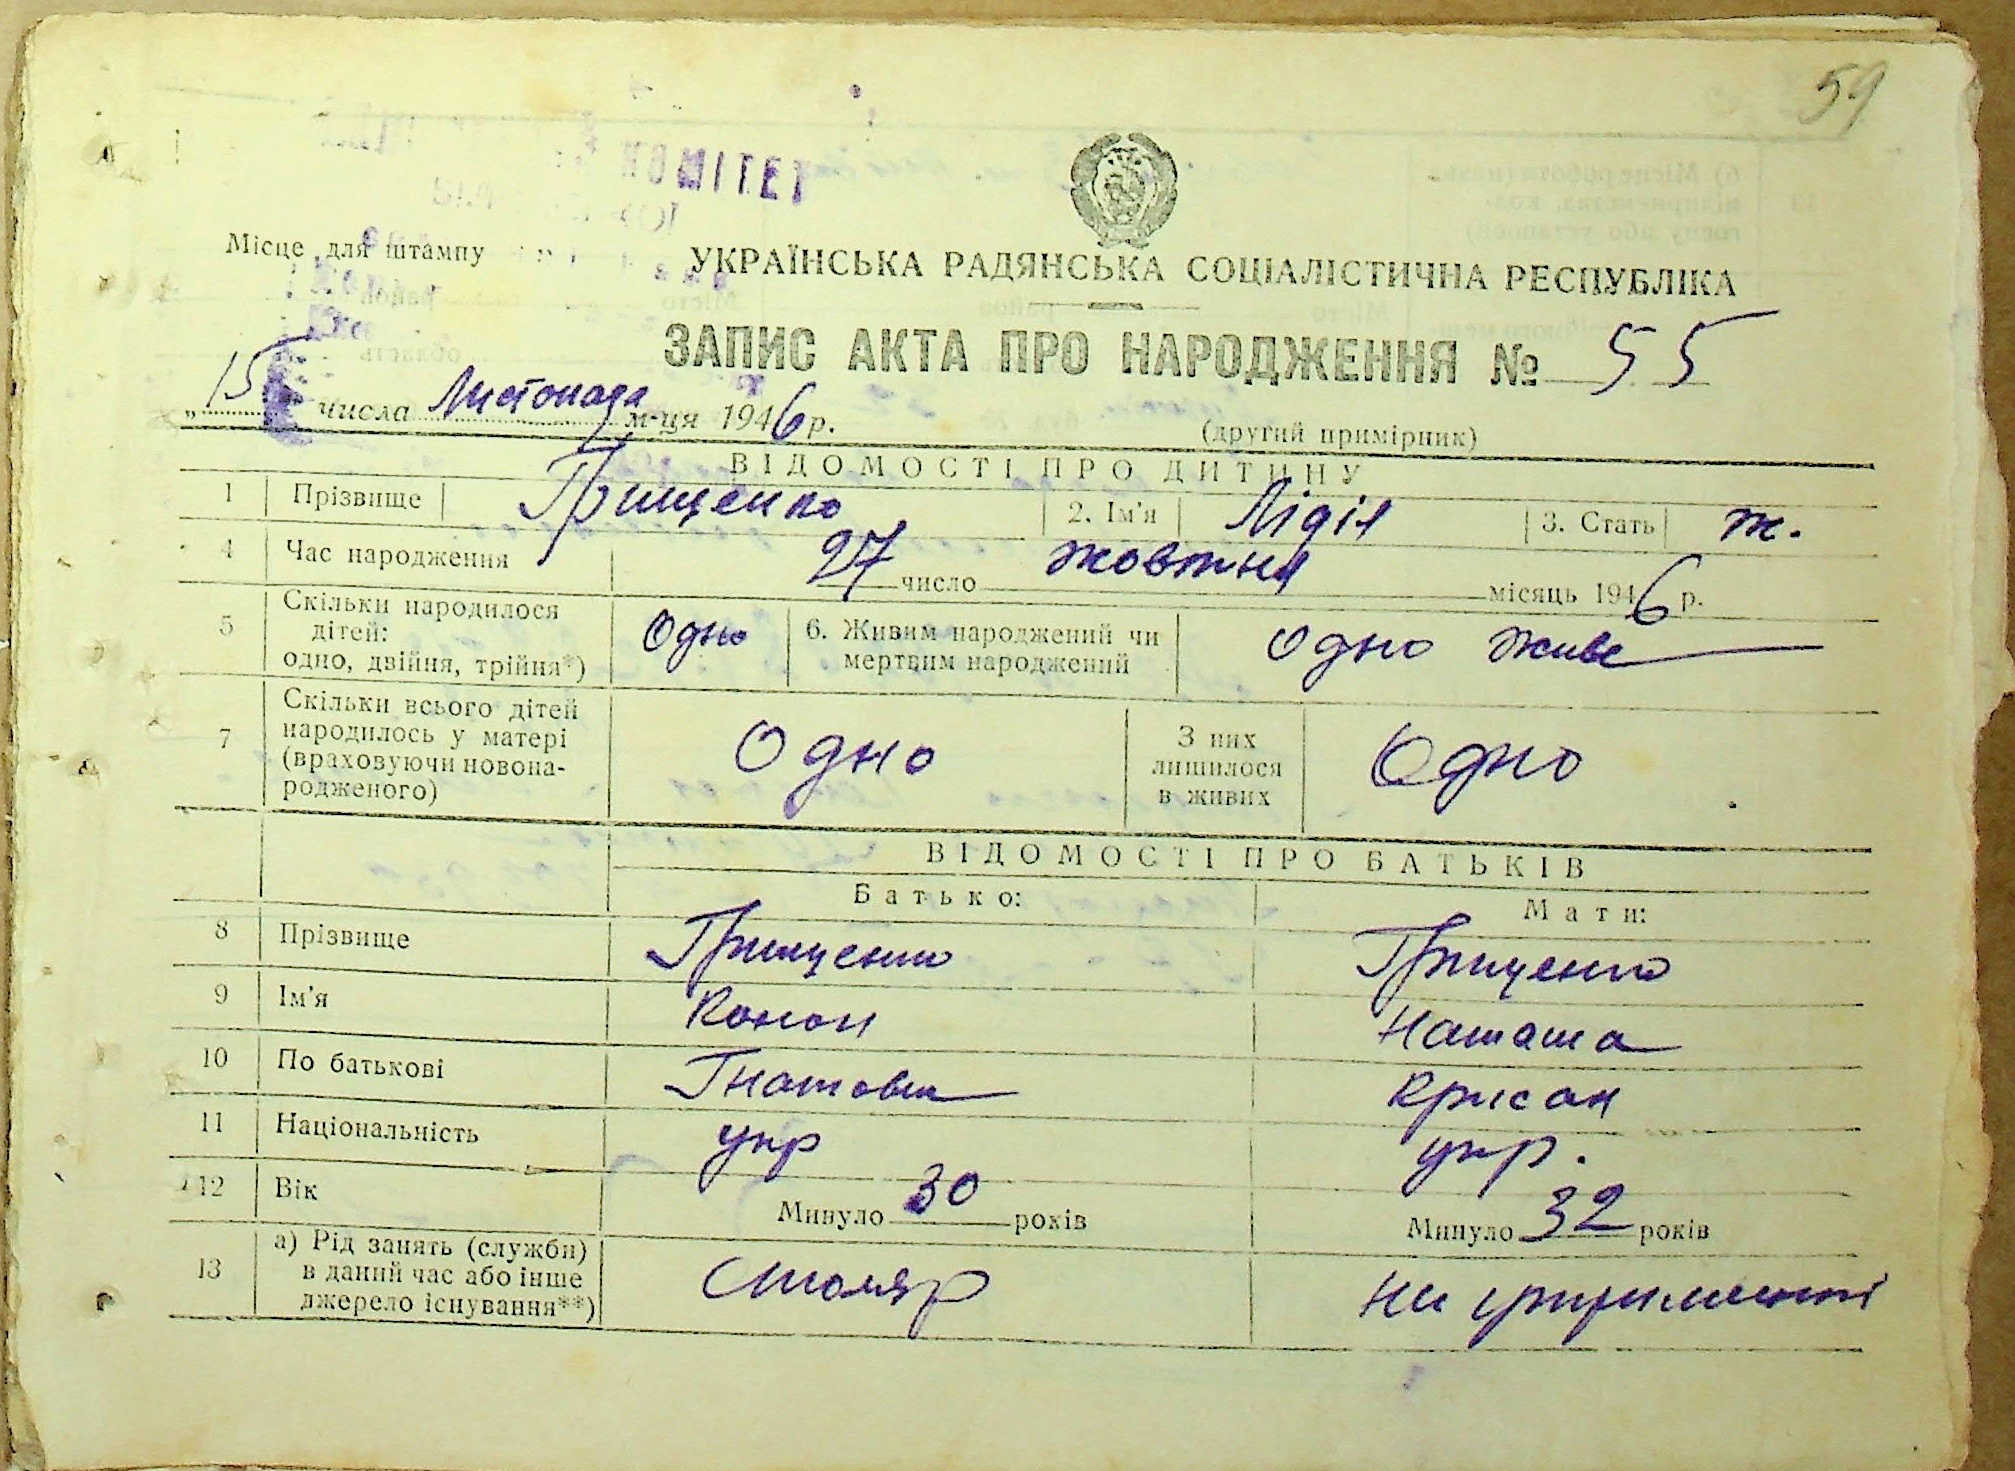 59
КОМІТЕТ
Місце для штампу
УКРАЇНСЬКА РАДЯНСЬКА СОЦІАЛІСТИЧНА РЕСПУБЛІКА
ЗАПИС АКТА ПРО НАРОДЖЕННЯ № 55
„15" числа Листопада м-ця 1946 р.
(другий примірник)
ВІДОМОСТІ ПРО ДИТИНУ
1 Прізвище Грищенко 2. Ім'я Лідія 3. Стать ж.
4 Час народження 27 число жовтня місяць 1946 р.
5 Скільки народилося дітей: одно, двійня, трійня*) Одно 6. Живим народжений чи мертвим народжений Одно живе
7 Скільки всього дітей народилось у матері (враховуючи новонародженого) Одно З них лишилося в живих Одно
ВІДОМОСТІ ПРО БАТЬКІВ
Батько: Мати:
8 Прізвище Грищенко Грищенко
9 Ім'я Конон Наташа
10 По батькові Гнатович Крисан
11 Національність укр укр.
12 Вік Минуло 30 років Минуло 32 років
13 а) Рід занять (служби) в даний час або інше джерело існування**) Столяр на утриманні